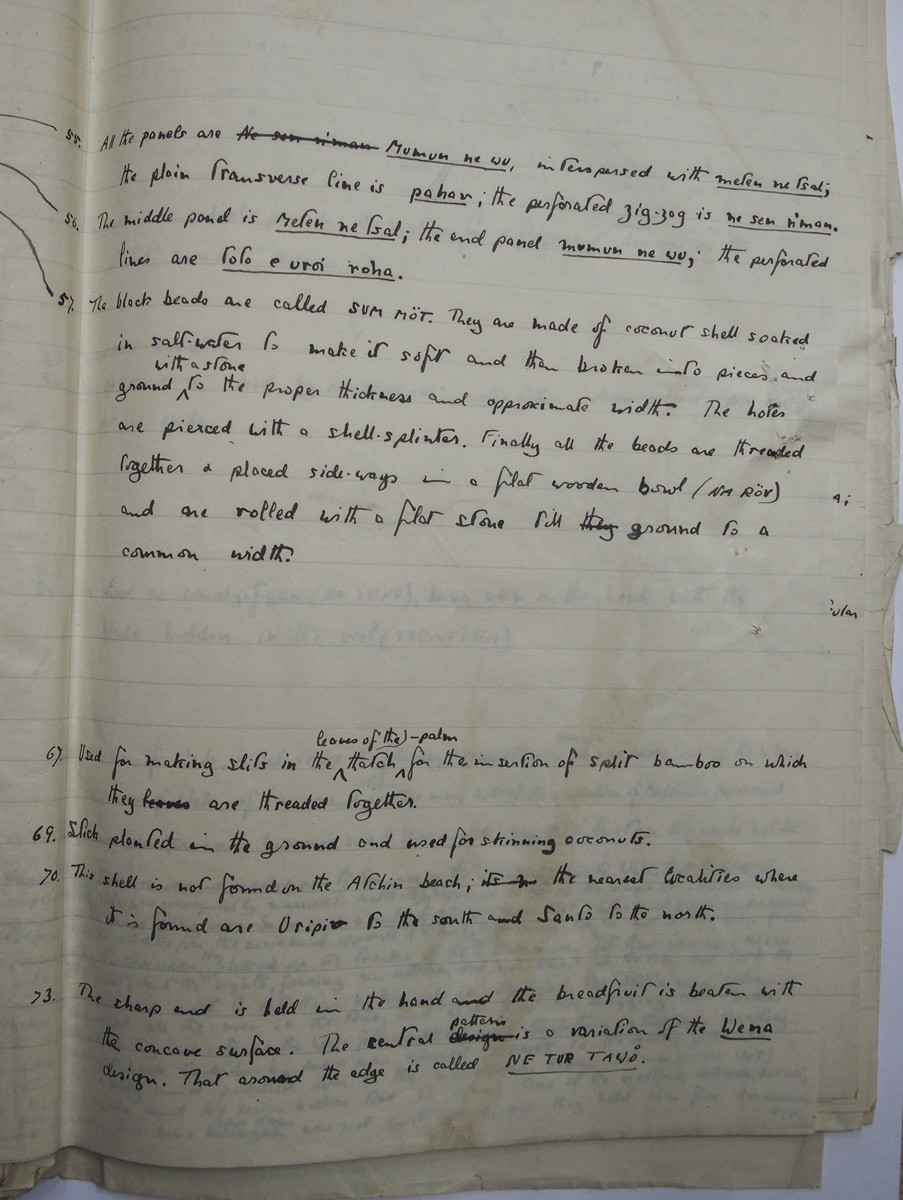 55. All the panels are Ne sen riman Mumun ne wu, interspersed with meten ne tsal;
the plain transverse line is pahav; the perforated zig-zag is ne sen riman.
56. The middle panel is meten ne tsal; the end panel mumun ne wu; the perforated
lines are lolo e uroi roha.
57. The black beads are called SUM MÖT. They are made of coconut shell soaked
in salt-water to make it soft and then broken into pieces and
with a stone
ground ^ to the proper thickness and approximate width. The holes
are pierced with a shell-splinter. Finally all the beads are threaded
together & placed side-ways in a flat wooden bowl (NA RÖV)
and are rolled with a flat stone till they ground to a
common width.
leaves of the)-palm
67. Used for making slits in the ^ thatch ^ for the insertion of split bamboo on which
they leaves are threaded together.
69. Stick planted in the ground and used for skinning coconuts.
70. This shell is not found on the Atchin beach; its n the nearest localities where
it is found are Uripiv to the south and Santo to the north.
73. The sharp end is held in the hand and the breadfruit is beaten with
pattern
the concave surface. The central design is a variation of the Wena
design. That around the edge is called NE TUR TAWO.